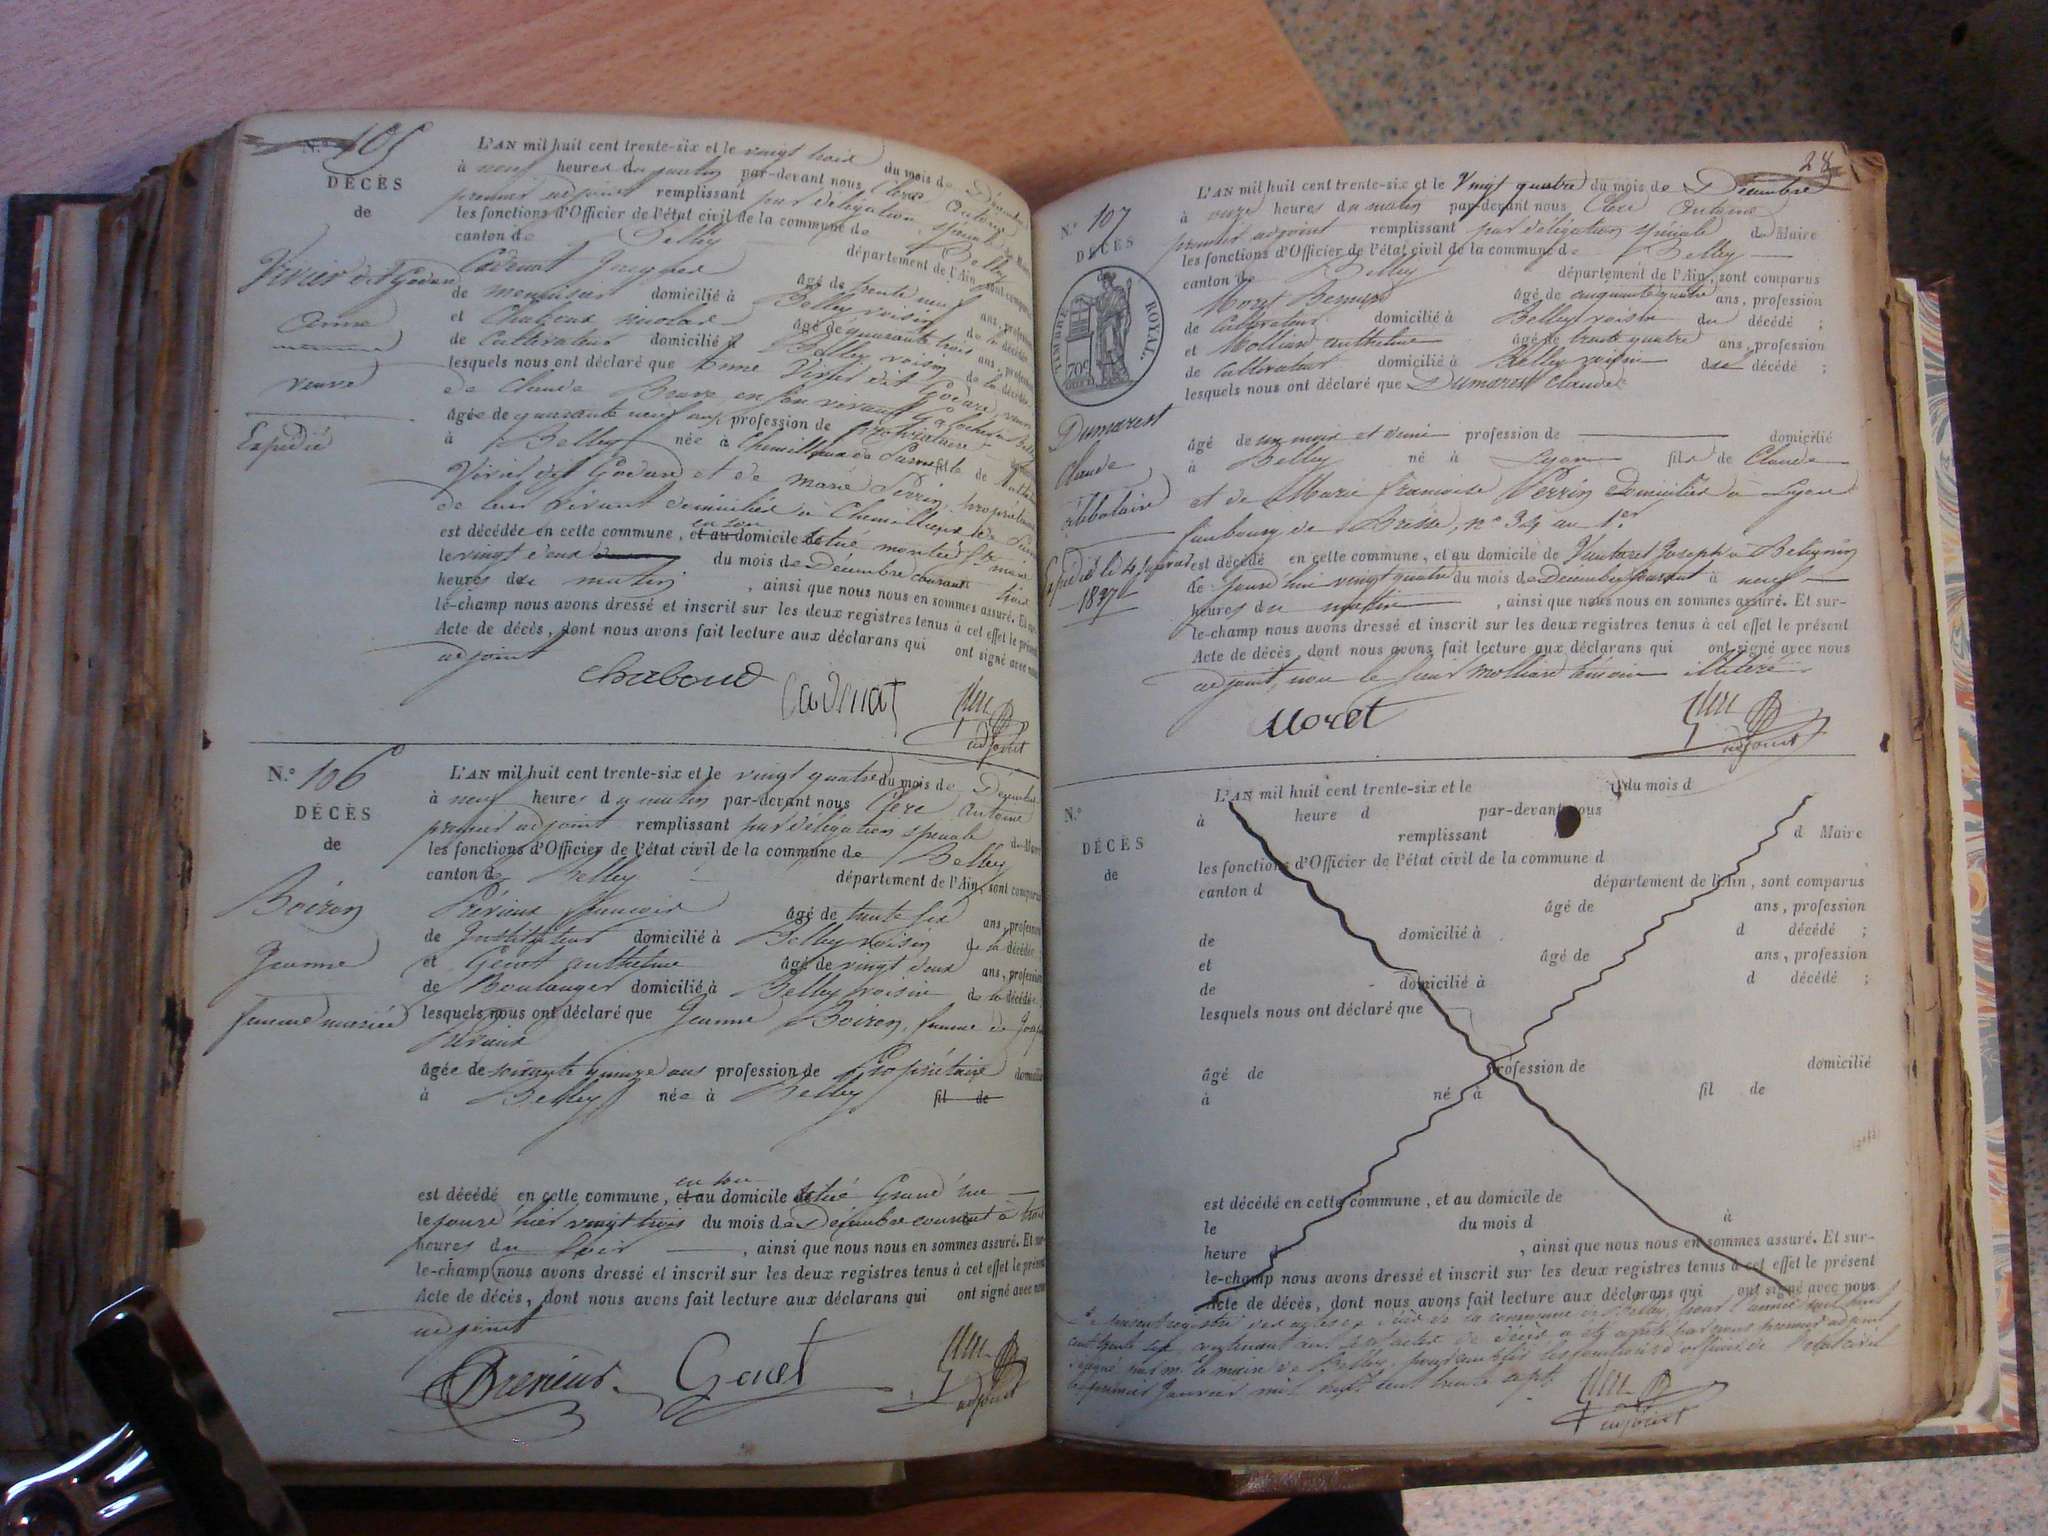 N.° 105
DÉCÈS
de
Vivier dit Godard
Anne
veuve
Expédié
L'AN mil huit cent trente-six et le vingt trois du mois de Décembre
à neuf heures du matin par-devant nous Clerc Antoine
premier adjoint remplissant par délégation spéciale de Maire
les fonctions d'Officier de l'état civil de la commune de Belley
canton de Belley département de l'Ain, sont comparus
Cadenat âgé de trente neuf ans, profession
de menuisier domicilié à Belley voisin de la décédée
et Chaboud nicolas âgé de quarante trois ans, profession
de Cultivateur domicilié à Belley voisin de la décédée
lesquels nous ont déclaré que Anne Vivier dit Godard, veuve
de Claude en son vivant
âgée de quarante neuf ans profession de propriétaire
à Belley née à fille de
Vivier dit Godard et de marie Perrin, propriétaires
de leur vivant domiciliés à
est décédée en cette commune, et au en son domicile de situé montée St. marie
le vingt deux du mois de Décembre courant trois
heures de matin, ainsi que nous nous en sommes assuré. Et sur-
le-champ nous avons dressé et inscrit sur les deux registres tenus à cet effet le présent
Acte de décès, dont nous avons fait lecture aux déclarans qui ont signé avec nous
adjoint
Chaboud Cadenat Clerc
adjoint
N.° 106
DÉCÈS
de
Boiron
Jeanne
femme mariée
L'AN mil huit cent trente-six et le vingt quatre du mois de Décembre
à neuf heures du matin par-devant nous Clerc Antoine
premier adjoint remplissant par délégation spéciale de Maire
les fonctions d'Officier de l'état civil de la commune de Belley
canton de Belley département de l'Ain, sont comparus
Prévieux françois âgé de trente six ans, profession
de Instituteur domicilié à Belley voisin de la décédée
et Genet anthelme âgé de vingt deux ans, profession
de Boulanger domicilié à Belley voisin de la décédée
lesquels nous ont déclaré que Jeanne Boiron, femme de Joseph
Prévieux
âgée de soixante quinze ans profession de Propriétaire domicilié
à Belley née à Belley fil de
est décédé en cette commune, et au en son domicile de situé Grand'rue
le jourd'hier vingt trois du mois de Décembre courant à trois
heures du soir, ainsi que nous nous en sommes assuré. Et sur-
le-champ nous avons dressé et inscrit sur les deux registres tenus à cet effet le présent
Acte de décès, dont nous avons fait lecture aux déclarans qui ont signé avec nous
adjoint
Prévieux Genet Clerc
adjoint
28
N.° 107
DÉCÈS
TIMBRE ROYAL.
70c
Dumarest
Claude
célibataire
Expédié le 4 1837
L'AN mil huit cent trente-six et le Vingt quatre du mois de Décembre
à onze heures du matin par-devant nous Clerc Antoine
premier adjoint remplissant par délégation spéciale de Maire
les fonctions d'Officier de l'état civil de la commune de Belley
canton de Belley département de l'Ain, sont comparus
Moret Bernard âgé de cinquante quatre ans, profession
de Cultivateur domicilié à Belley voisin du décédé ;
et Molliard anthelme âgé de trente quatre ans, profession
de Cultivateur domicilié à Belley voisin du décédé ;
lesquels nous ont déclaré que Dumarest Claude
âgé de un mois et demi profession de domicilié
à Belley né à Lyon fils de Claude
et de Marie françoise Perrin domiciliés à Lyon
faubourg de Bresse, n° 34 au 1.er
est décédé en cette commune, et au domicile de Joseph à
de jourd'hui vingt quatre du mois de Décembre courant à neuf
heures du matin, ainsi que nous nous en sommes assuré. Et sur-
le-champ nous avons dressé et inscrit sur les deux registres tenus à cet effet le présent
Acte de décès, dont nous avons fait lecture aux déclarans qui ont signé avec nous
adjoint, non le sieur Molliard témoin illitéré
Moret Clerc
adjoint
N.°
DÉCÈS
de
L'AN mil huit cent trente-six et le du mois d
à heure d par-devant nous
remplissant d Maire
les fonctions d'Officier de l'état civil de la commune d
canton d département de l'Ain, sont comparus
âgé de ans, profession
de domicilié à d décédé ;
et âgé de ans, profession
de domicilié à d décédé ;
lesquels nous ont déclaré que
âgé de profession de domicilié
à né à fil de
est décédé en cette commune, et au domicile de
le du mois d à
heure d , ainsi que nous nous en sommes assuré. Et sur-
le-champ nous avons dressé et inscrit sur les deux registres tenus à cet effet le présent
Acte de décès, dont nous avons fait lecture aux déclarans qui ont signé avec nous
Le présent registre des actes de décès de la commune de Belley, pour l'année mil huit
cent trente six, contenant actes de décès a été arrêté par nous premier adjoint
délégué par m. le maire de Belley, pour remplir les fonctions d'officier de l'état civil
le premier Janvier mil huit cent trente sept.
Clerc
adjoint